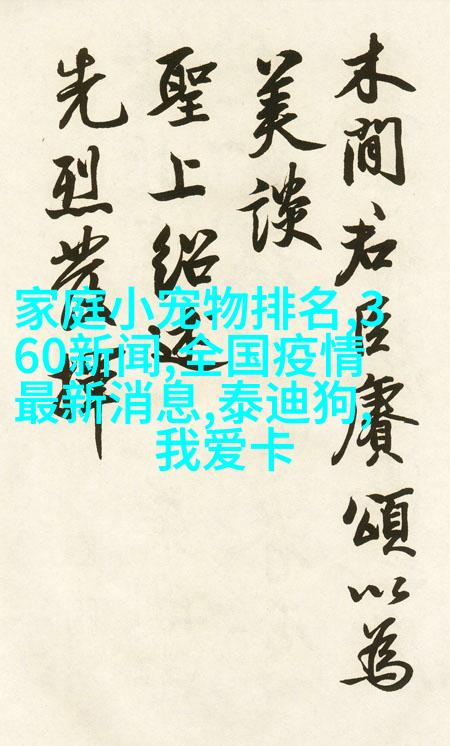 木間君臣賡頌以為
美談
聖上紹述
先烈發揮
家庭小宠物排名,3
60新闻,全国疫情
最新消息,泰迪狗,
我爱卡